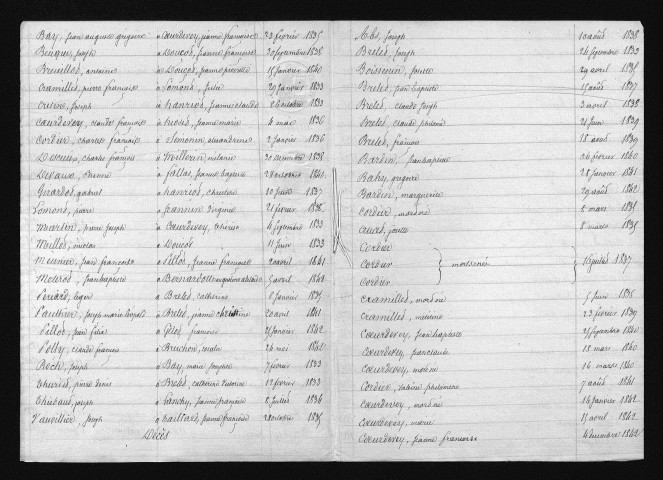 Bay, jean auguste grégoire à Cœurdevey, jeanne françoise 23 février 1835
Beuque, joseph à Doucot, jeanne françoise 30 septembre 1838
Breuillot, antoine à Doucot, jeanne 15 janvier 1840
Cramillet, pierre françois à Lomont, julie 29 janvier 1833
Cretin, joseph à hanriot, jeanne claude 26 octobre 1833
Cœurdevey, claude françois à jeanne marie 4 mai 1836
Cordier, charles françois à Simonin, alexandrine 2 janvier 1836
charles françois à Millerin, mélanie 20 décembre 1838
Devaux, Etienne à fallas, jeanne baptiste 28 1841
Girardot, gabriel à hanriot, christine 10 1837
Lomont, pierre à Jeannin, Virginie 21 février 1838
Martin, pierre joseph à Cœurdevey, thérèse 4 septembre 1833
Millot, nicolas à Doucot 11 juin 1833
Meunier, jean françois à Pillot, jeanne françoise 20 avril 1841
jean baptiste à Bernardot 5 avril 1842
léger à Bretet, catherine 8 janvier 1835
Pauthier, joseph marie léopold à Bretet, jeanne christine 20 avril 1841
Pillot, jean félix à françoise 25 janvier 1842
Polby, claude françois à Bruchon, rosalie 26 mai 1842
Béch, joseph à Bay, marie josephe 7 février 1833
Thuriet, pierre denis à Bretet, catherine victorine 12 février 1833
Thiébaud, joseph à Vanchy, jeanne françoise 8 juillet 1836
Vauvillier, joseph à Gaillard, jeanne françoise 28 octobre 1835
Décès
Abt, joseph 10 août 1838
Bretet, joseph 26 septembre 1833
Boissenin, 29 avril 1835
Bretet, jean baptiste 15 août 1837
Bretet, claude joseph 3 avril 1838
Bretet, claude 21 juin 1839
Bretet, françois 15 août 1839
Bardin, jean baptiste 26 février 1840
Bahy, grégoire 28 janvier 1841
Bardin, marguerite 29 août 1842
Cordier, mort-né 8 mars 1835
8 mars 1835
Cordier
Cordier } morts-nés 16 juillet 1837
Cordier
Cramillet, mort-né 5 juin 1838
Cramillet, mélanie 23 février 1839
Cœurdevey, jean baptiste 25 septembre 1840
Cœurdevey, jean claude 18 mars 1840
Cœurdevey, mort-né 16 mars 1840
Cordier, philomène 7 août 1841
Cœurdevey, mort-né 16 janvier 1842
Cœurdevey, marie 15 avril 1842
Cœurdevey, jeanne françoise 4 décembre 1842